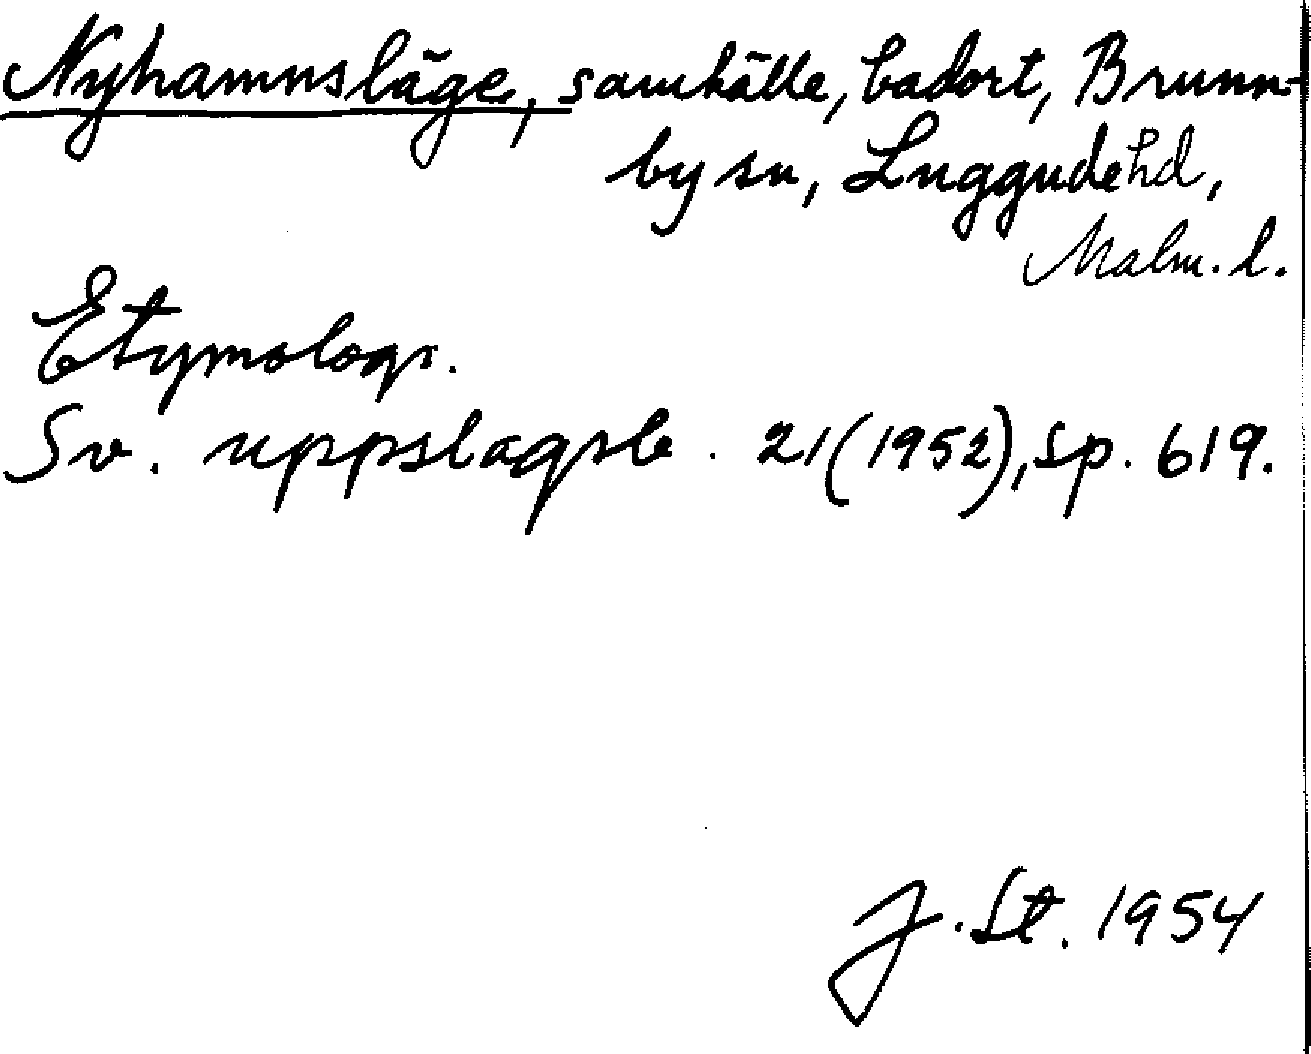 Nyhamnsläge, samhälle, badort, Brunn-
by sn, Luggude hd,
Malm. l.
Etymologi.
Sv. uppslagsb. 21 (1952), sp. 619.
J. St. 1954